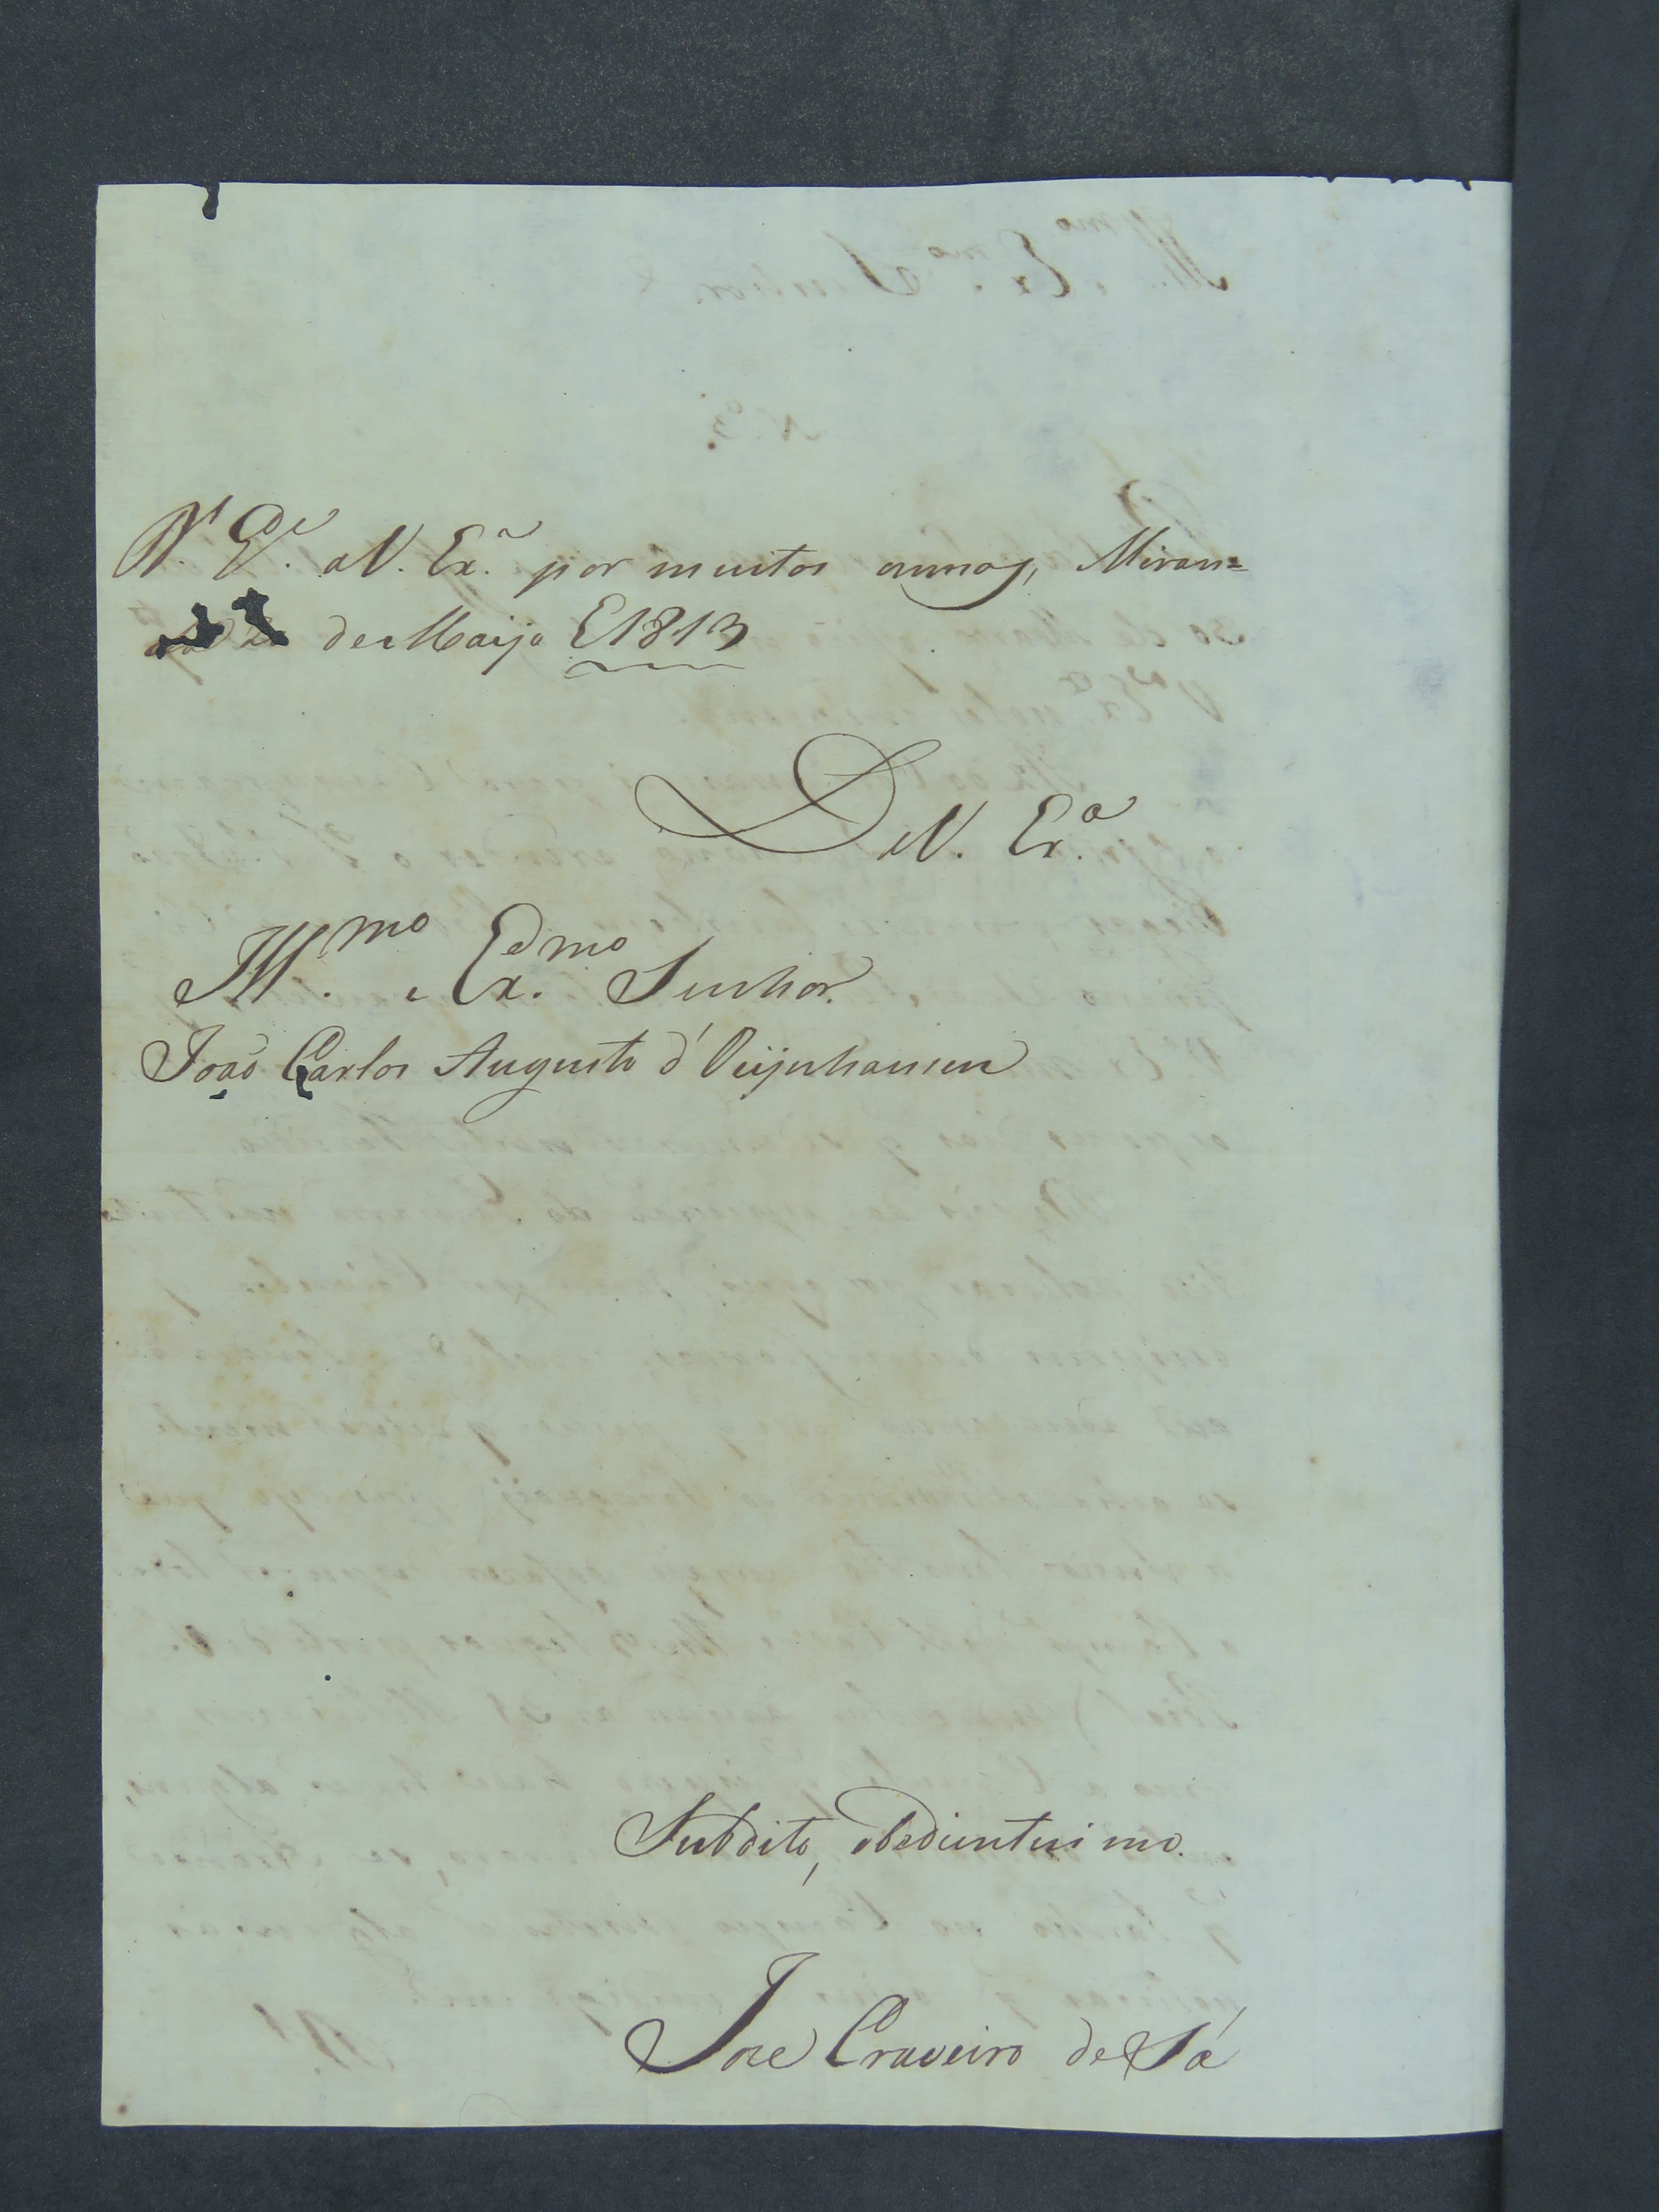 D.s G.de a V. Ex.a por muitos annos, Miran=
de Maijo E 1813
De V. Ex.a
Ill.mo e Ex.mo Senhor.
Joaõ Carlos Augusto d'Oeijnhausen
Subdito, obedientisimo.
Joze Craveiro de Sá